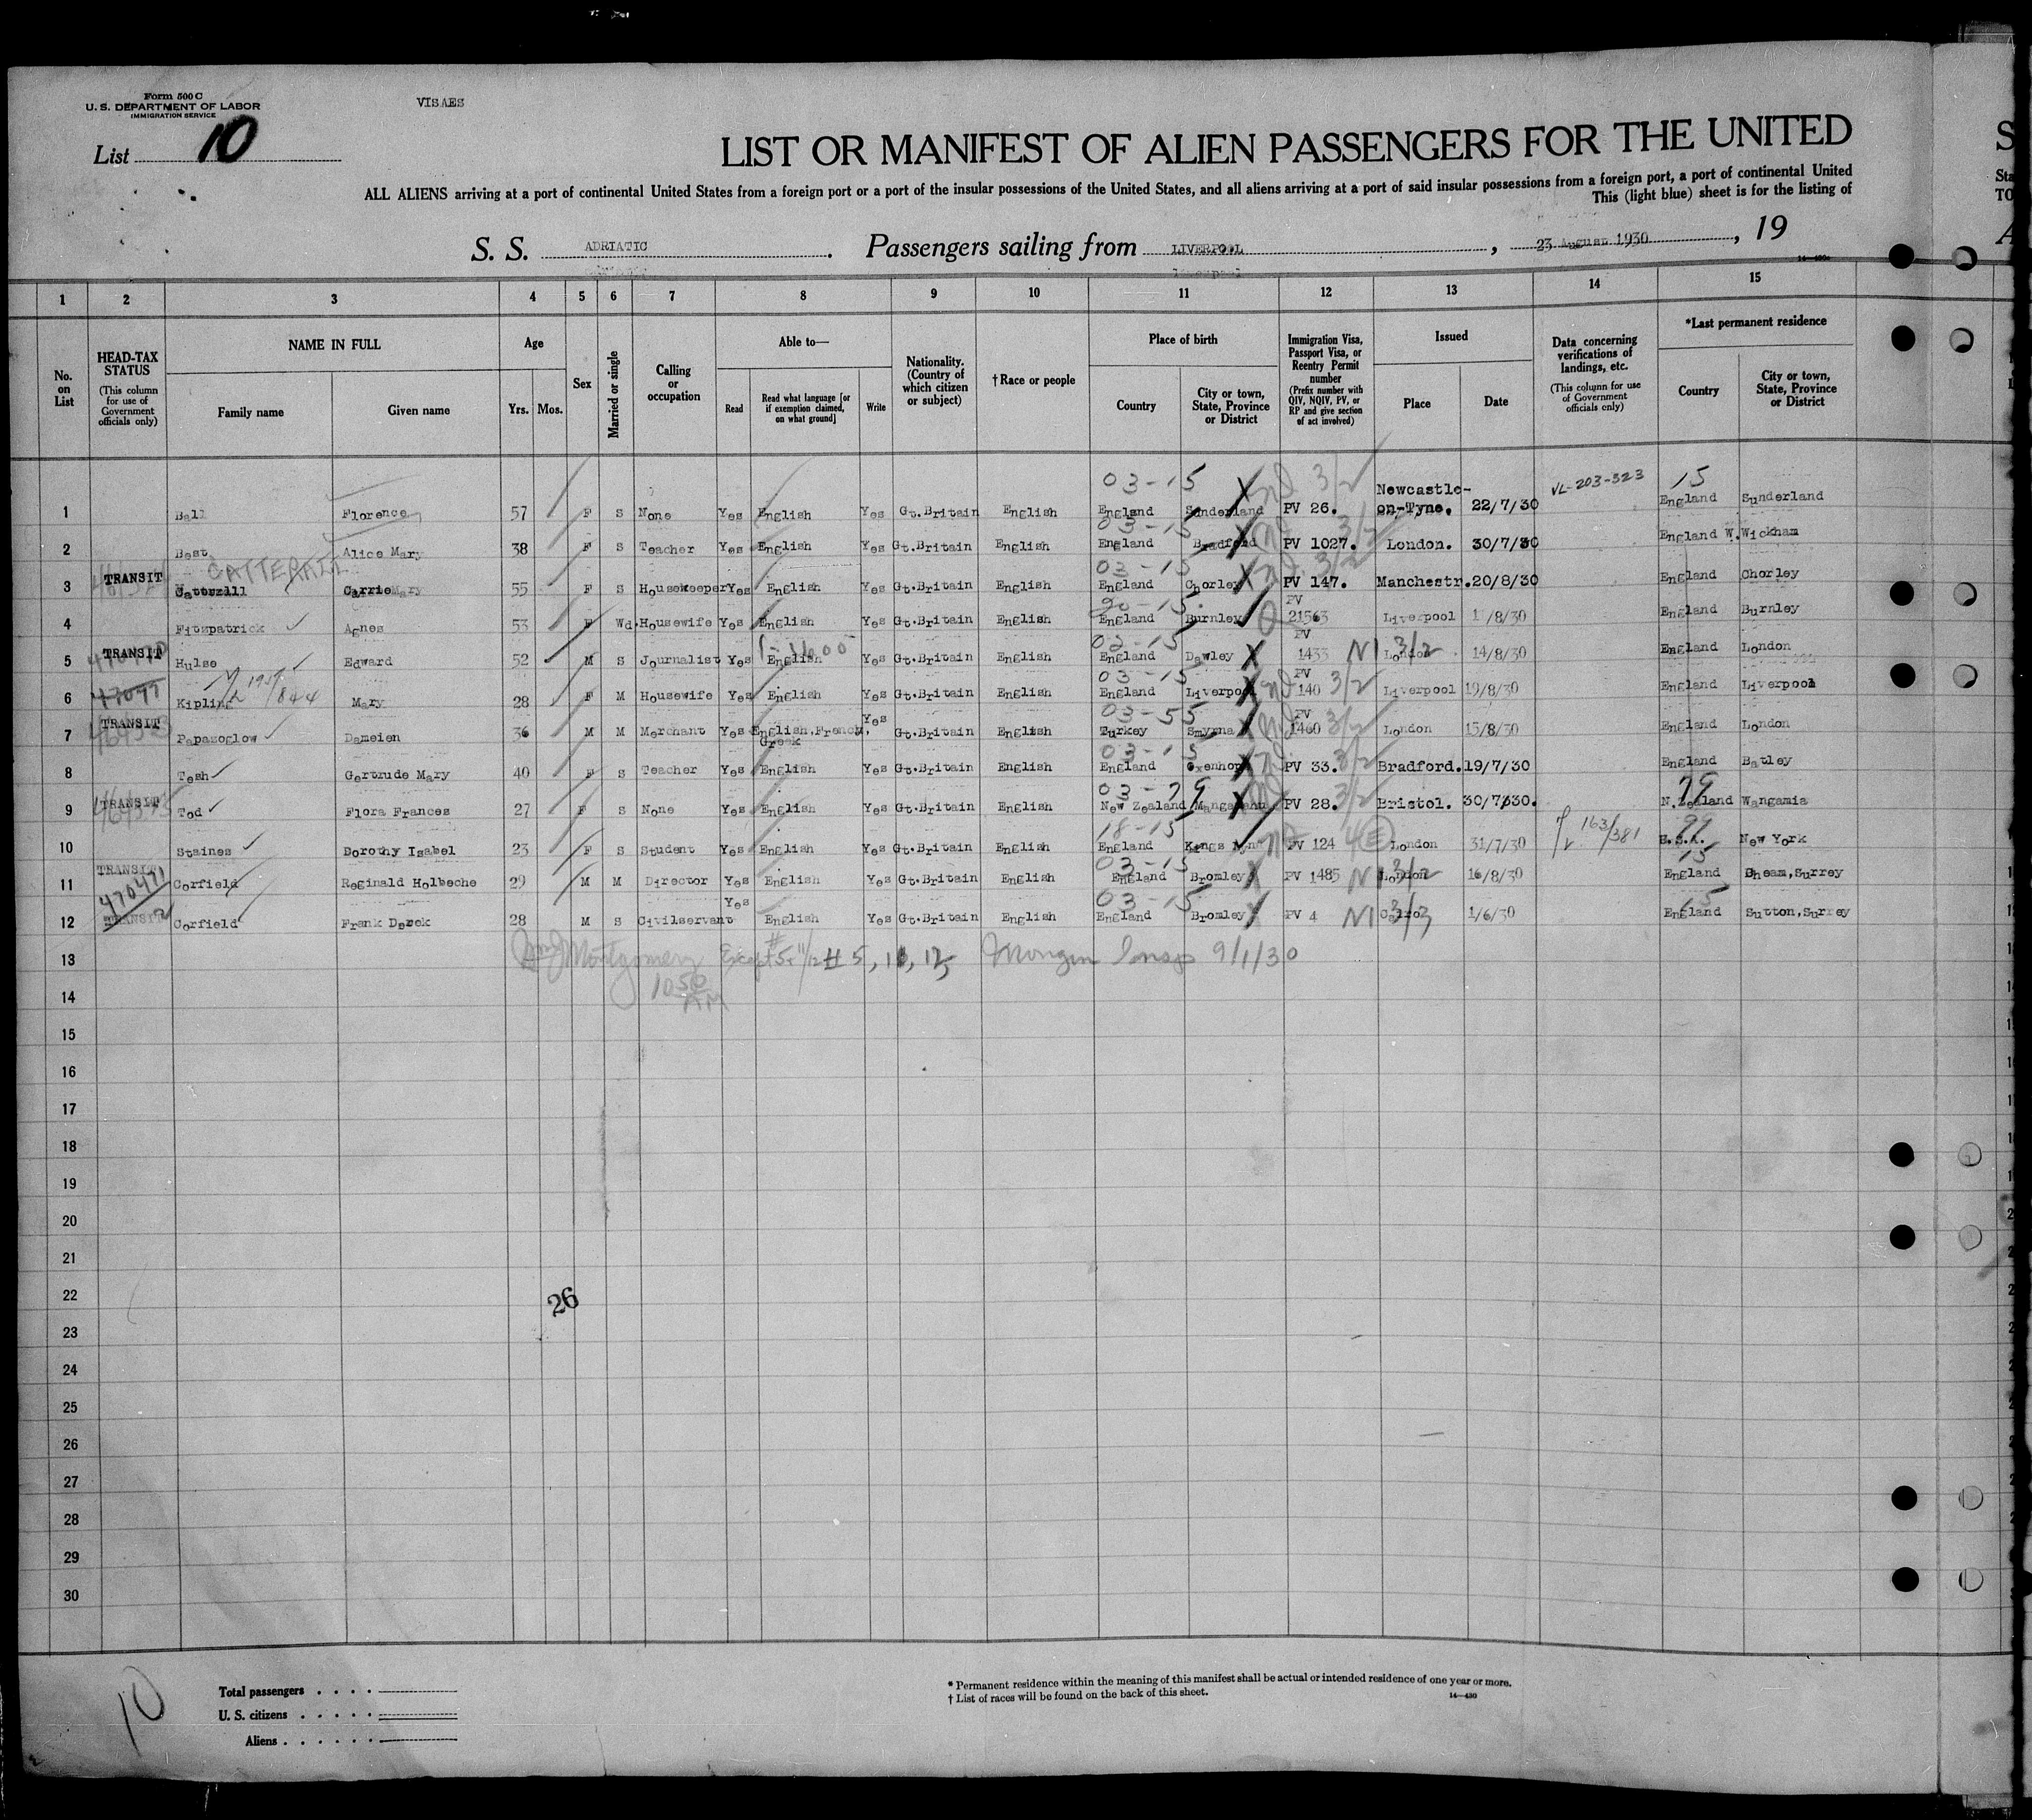 Form 500 C
U. S. DEPARTMENT OF LABOR
IMMIGRATION SERVICE
VISAES
List 10
LIST OR MANIFEST OF ALIEN PASSENGERS FOR THE UNITED
S
ALL ALIENS arriving at a port of continental United States from a foreign port or a port of the insular possessions of the United States, and all aliens arriving at a port of said insular possessions from a foreign port, a port of continental United
Sta
This (light blue) sheet is for the listing of
TO
S. S. ADRIATIC. Passengers sailing from LIVERPOOL, 23 August 1930, 19
1 2 3 4 5 6 7 8 9 10 11 12 13 14 15
No. on List
HEAD-TAX STATUS (This column for use of Government officials only)
NAME IN FULL
Family name Given name
Age
Yrs. Mos.
Sex
Married or single
Calling or occupation
Able to—
Read Read what language [or if exemption claimed, on what ground] Write
Nationality. (Country of which citizen or subject)
† Race or people
Place of birth
Country City or town, State, Province or District
Immigration Visa, Passport Visa, or Reentry Permit number (Prefix number with QIV, NQIV, PV, or RP and give section of act involved)
Issued
Place Date
Data concerning verifications of landings, etc. (This column for use of Government officials only)
*Last permanent residence
Country City or town, State, Province or District
03-15 3/2 VL-203-323 15
1 Bell Florence 57 F S None Yes English Yes Gt.Britain English England Sunderland PV 26. Newcastle-on-Tyne. 22/7/30 England Sunderland
03-15 3/2
2 Best Alice Mary 38 F S Teacher Yes English Yes Gt.Britain English England Bradford PV 1027. London. 30/7/30 England W.Wickham
CATTERALL 03-15 3/2
3 TRANSIT Catterall Carrie Mary 55 F S Housekeeper Yes English Yes Gt.Britain English England Chorley PV 147. Manchestr. 20/8/30 England Chorley
4 Fitzpatrick Agnes 53 F Wd. Housewife Yes English Yes Gt.Britain English England Burnley PV 21563 Liverpool 11/8/30 England Burnley
03-15
5 TRANSIT Hulse Edward 52 M S Journalist Yes English Yes Gt.Britain English England Dawley PV 1433 London 3/2 14/8/30 England London
03-15
6 Kipling Mary 28 F M Housewife Yes English Yes Gt.Britain English England Liverpool PV 140 3/2 Liverpool 19/8/30 England Liverpool
03-55
7 TRANSIT Papazoglow Dameien 36 M M Merchant Yes English, French, Greek Yes Gt.Britain English Turkey Smyrna PV 1460 3/2 London 15/8/30 England London
03-15
8 Tesh Gertrude Mary 40 F S Teacher Yes English Yes Gt.Britain English England Oxenhop PV 33. 3/2 Bradford. 19/7/30 England Batley
03-79 79
9 TRANSIT Tod Flora Frances 27 F S None Yes English Yes Gt.Britain English New Zealand PV 28. 3/2 Bristol. 30/7/30. N.Zealand Wangamia
18-15 163/381 99
10 Staines Dorothy Isabel 23 F S Student Yes English Yes Gt.Britain English England Kings Lynn PV 124 London 31/7/30 New York
03-15 15
11 TRANSIT 470471 Corfield Reginald Holbeche 29 M M Director Yes English Yes Gt.Britain English England Bromley PV 1485 London 16/8/30 England Cheam, Surrey
03-15 15
12 TRANSIT Corfield Frank Derek 28 M S Civilservant Yes English Yes Gt.Britain English England Bromley PV 4 Cairo 1/6/30 England Sutton, Surrey
13 Montgomery Except # 5, 11, 12, 9/1/30
14 10 50 AM
15
16
17
18
19
20
21
22 26
23
24
25
26
27
28
29
30
10
Total passengers
U. S. citizens
Aliens
* Permanent residence within the meaning of this manifest shall be actual or intended residence of one year or more.
† List of races will be found on the back of this sheet. 14—430